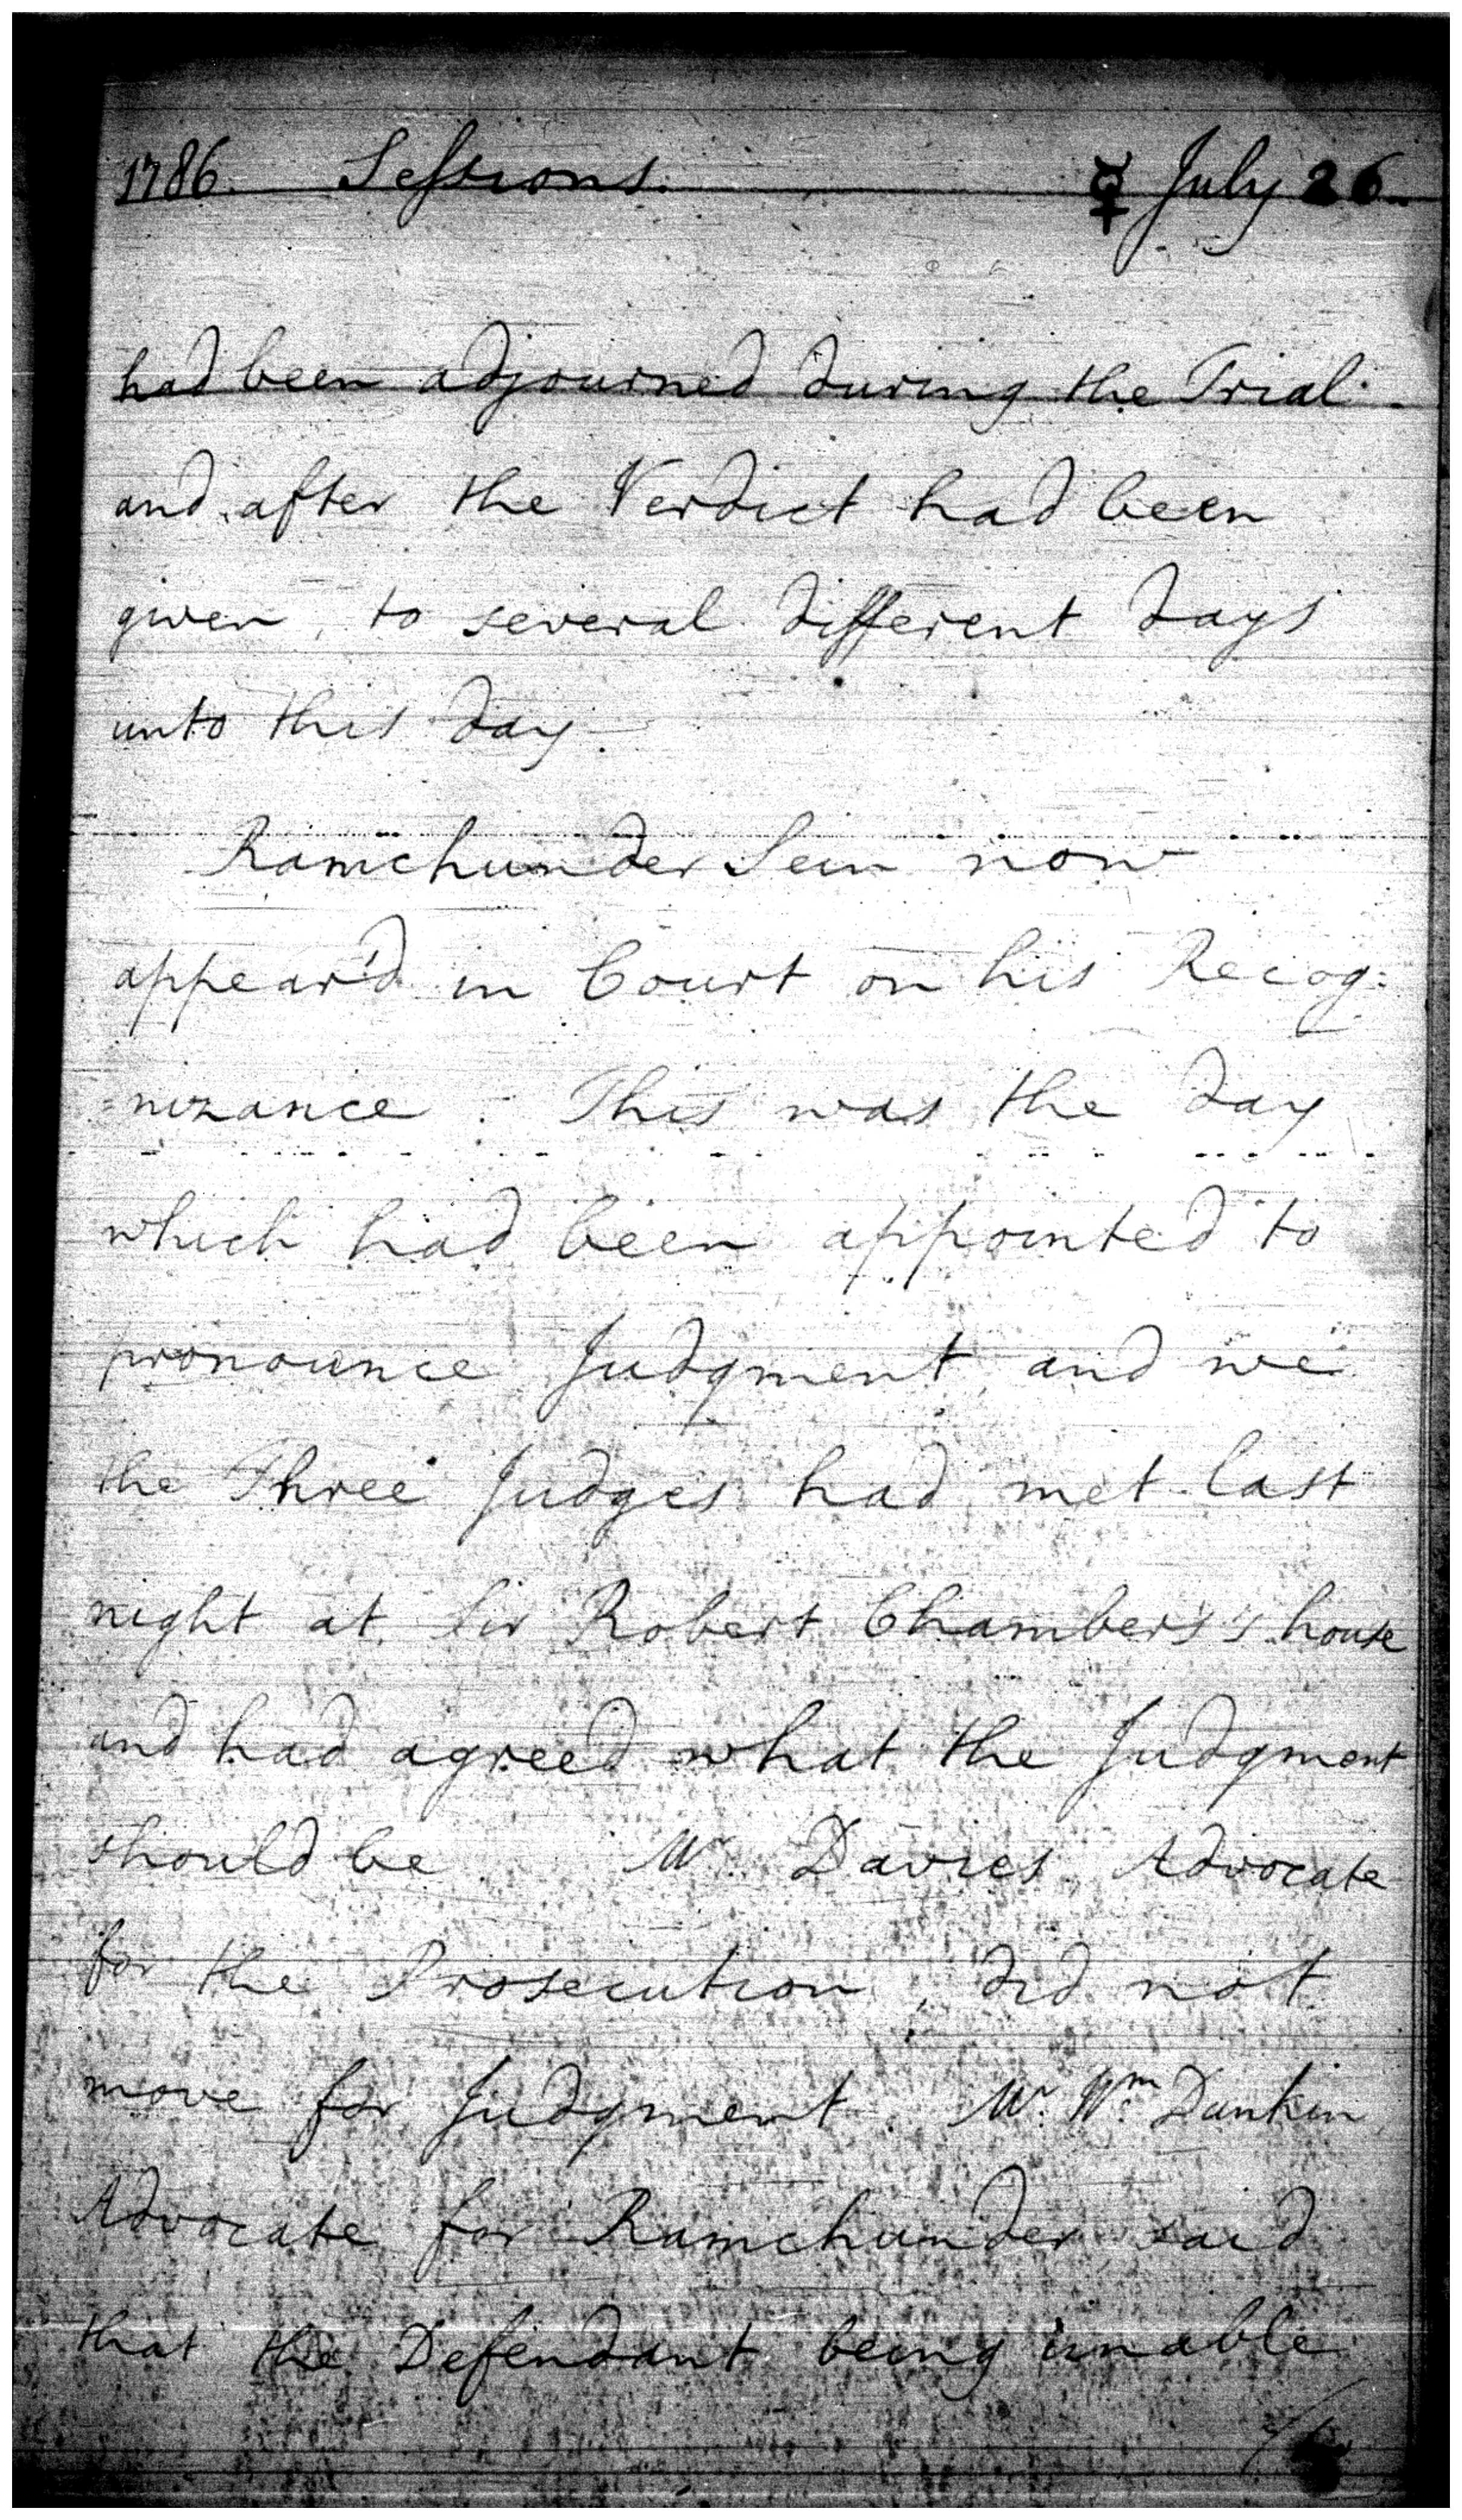 1786. Sessions. ☿ July 26.
had been adjourned during the Trial
and after the Verdict had been
given, to several different days
unto this day.
Ramchunder Sein now
appear'd in Court on his Recog=
=nizance. This was the day
which had been appointed to
pronounce Judgment, and we
the Three Judges had met last
night at Sir Robert Chambers's house
and had agreed what the Judgment
should be. Mr Davies, Advocate
for the Prosecution, did not
move for Judgment. Mr. Wm. Dunkin
Advocate for Ramchunder, said
that the Defendant being unable